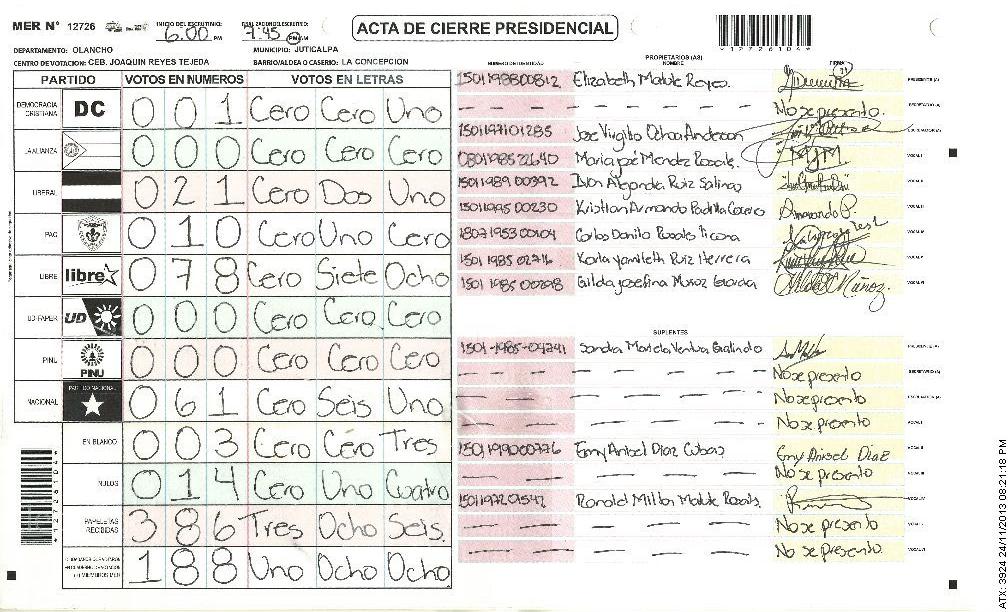 MER N° 12726
INICIO DEL ESCRUTINIO: 6.00 PM
7:45 PM AM
ACTA DE CIERRE PRESIDENCIAL
*12726104*
DEPARTAMENTO: OLANCHO
MUNICIPIO: JUTICALPA
CENTRO DE VOTACION: CEB. JOAQUIN REYES TEJEDA
BARRIO/ALDEA O CASERIO: LA CONCEPCION
PARTIDO VOTOS EN NUMEROS VOTOS EN LETRAS
DEMOCRACIA CRISTIANA DC 0 0 1 Cero Cero Uno
LA ALIANZA 0 0 0 Cero Cero Cero
LIBERAL 0 2 1 Cero Dos Uno
PAC 0 1 0 Cero Uno Cero
LIBRE libre 0 7 8 Cero Siete Ocho
UD-FAPER UD 0 0 0 Cero Cero Cero
PINU PINU 0 0 0 Cero Cero Cero
NACIONAL PARTIDO NACIONAL 0 6 1 Cero Seis Uno
EN BLANCO 0 0 3 Cero Cero Tres
NULOS 0 1 4 Cero Uno Cuatro
PAPELETAS RECIBIDAS 3 8 6 Tres Ocho Seis.
1 8 8 Uno Ocho Ocho
PROPIETARIOS (AS)
NUMERO DE IDENTIDAD NOMBRE FIRMA
1501198800812 Elizabeth Matute Reyes. PRESIDENTE (A)
— — — — — — No se presento. SECRETARIO (A)
1501197101285 Jose Virgilio Ochoa Anderson ESCRUTADOR (A)
0801198521640 Maria José Mendez Rosales. MJM VOCAL I
1501198900392 Alejandra Ruiz Salinas VOCAL II
1501199500230 Kristian Armando Padilla Armando P. VOCAL III
1807195300104 Carlos Danilo Rosales VOCAL IV
1501198502716 Karla Yamileth Ruiz Herrera VOCAL V
1501198500298 Gilda Josefina Muñoz Gilda J. Muñoz. VOCAL VI
SUPLENTES
1501-1985-04241 Sandra Mariela Ventura Galindo PRESIDENTE (A)
— — — — No se presento SECRETARIO (A)
— — — — No se presento ESCRUTADOR (A)
— — — — No se presento VOCAL I
1501199000776 Emy Anibel Diaz Cubas Emy Anibel Diaz VOCAL II
— — — — No se presento VOCAL III
Ronald Milton Matute Rosales. VOCAL IV
— — — — No se presento VOCAL V
— — — — No se presento. VOCAL VI
ATX: 3924 24/11/2013 08:21:18 PM